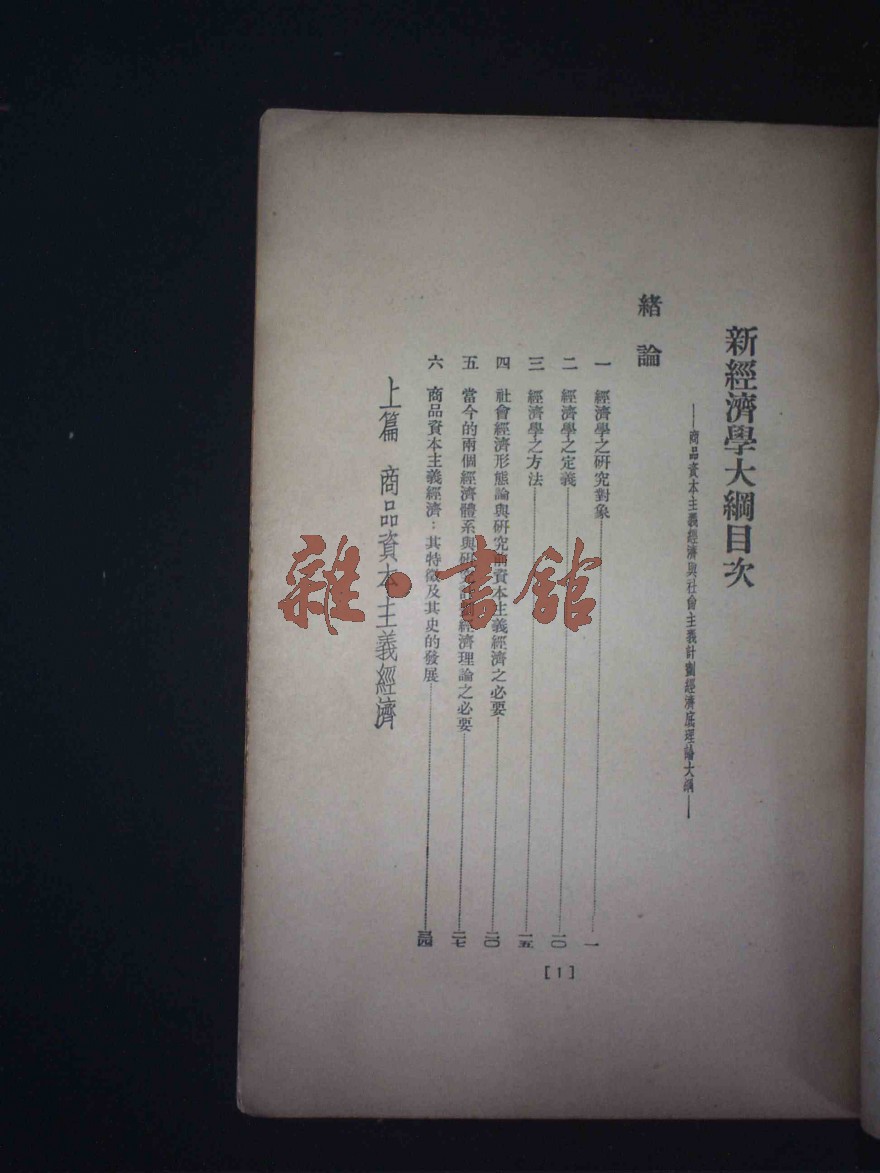 新經濟學大綱目次
——商品資本主義經濟與社會主義計劃經濟底理論大綱——
緒論
一 經濟學之研究對象……一
二 經濟學之定義……一〇
三 經濟學之方法……一五
四 社會經濟形態論與研究 資本主義經濟之必要……二〇
五 當今的兩個經濟體系與研究計劃經濟理論之必要……二七
六 商品資本主義經濟:其特徵及其史的發展……三四
上篇 商品資本主義經濟
[1]
雜·書館